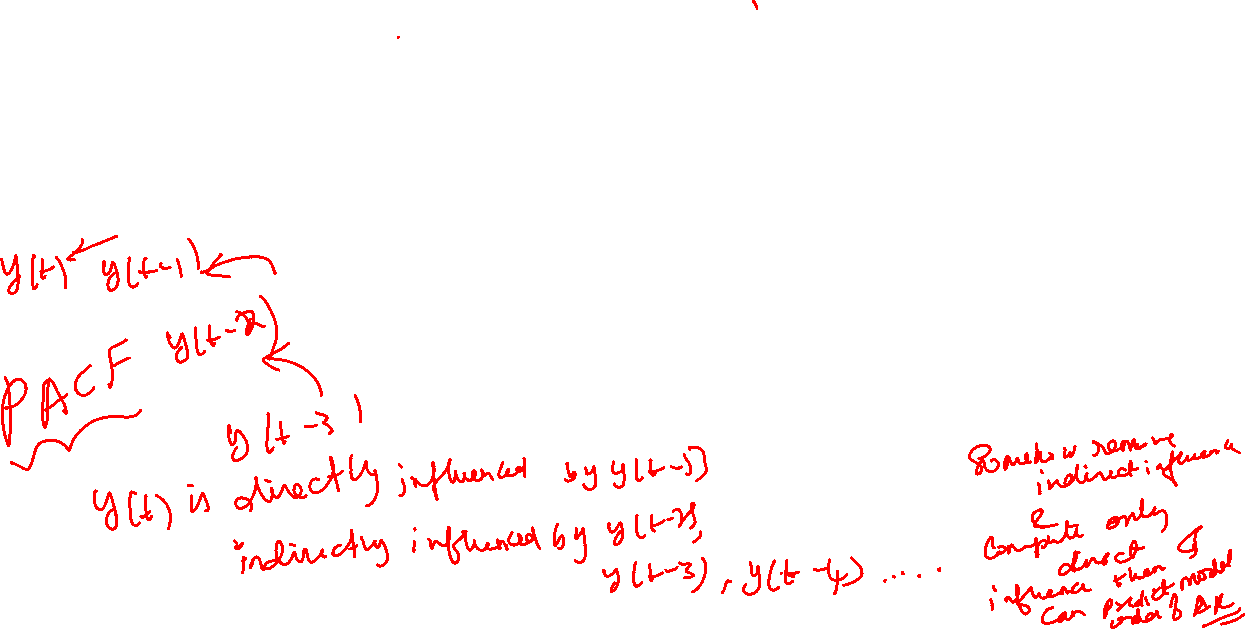 y(t) y(t-1)
y(t-2)
PACF
y(t-3)
y(t) is directly influenced by y(t-1)
indirectly influenced by y(t-2),
y(t-3), y(t-4) .....
Somehow remove
indirect influence
&
compute only
direct
influence then I
can predict model
order of AR